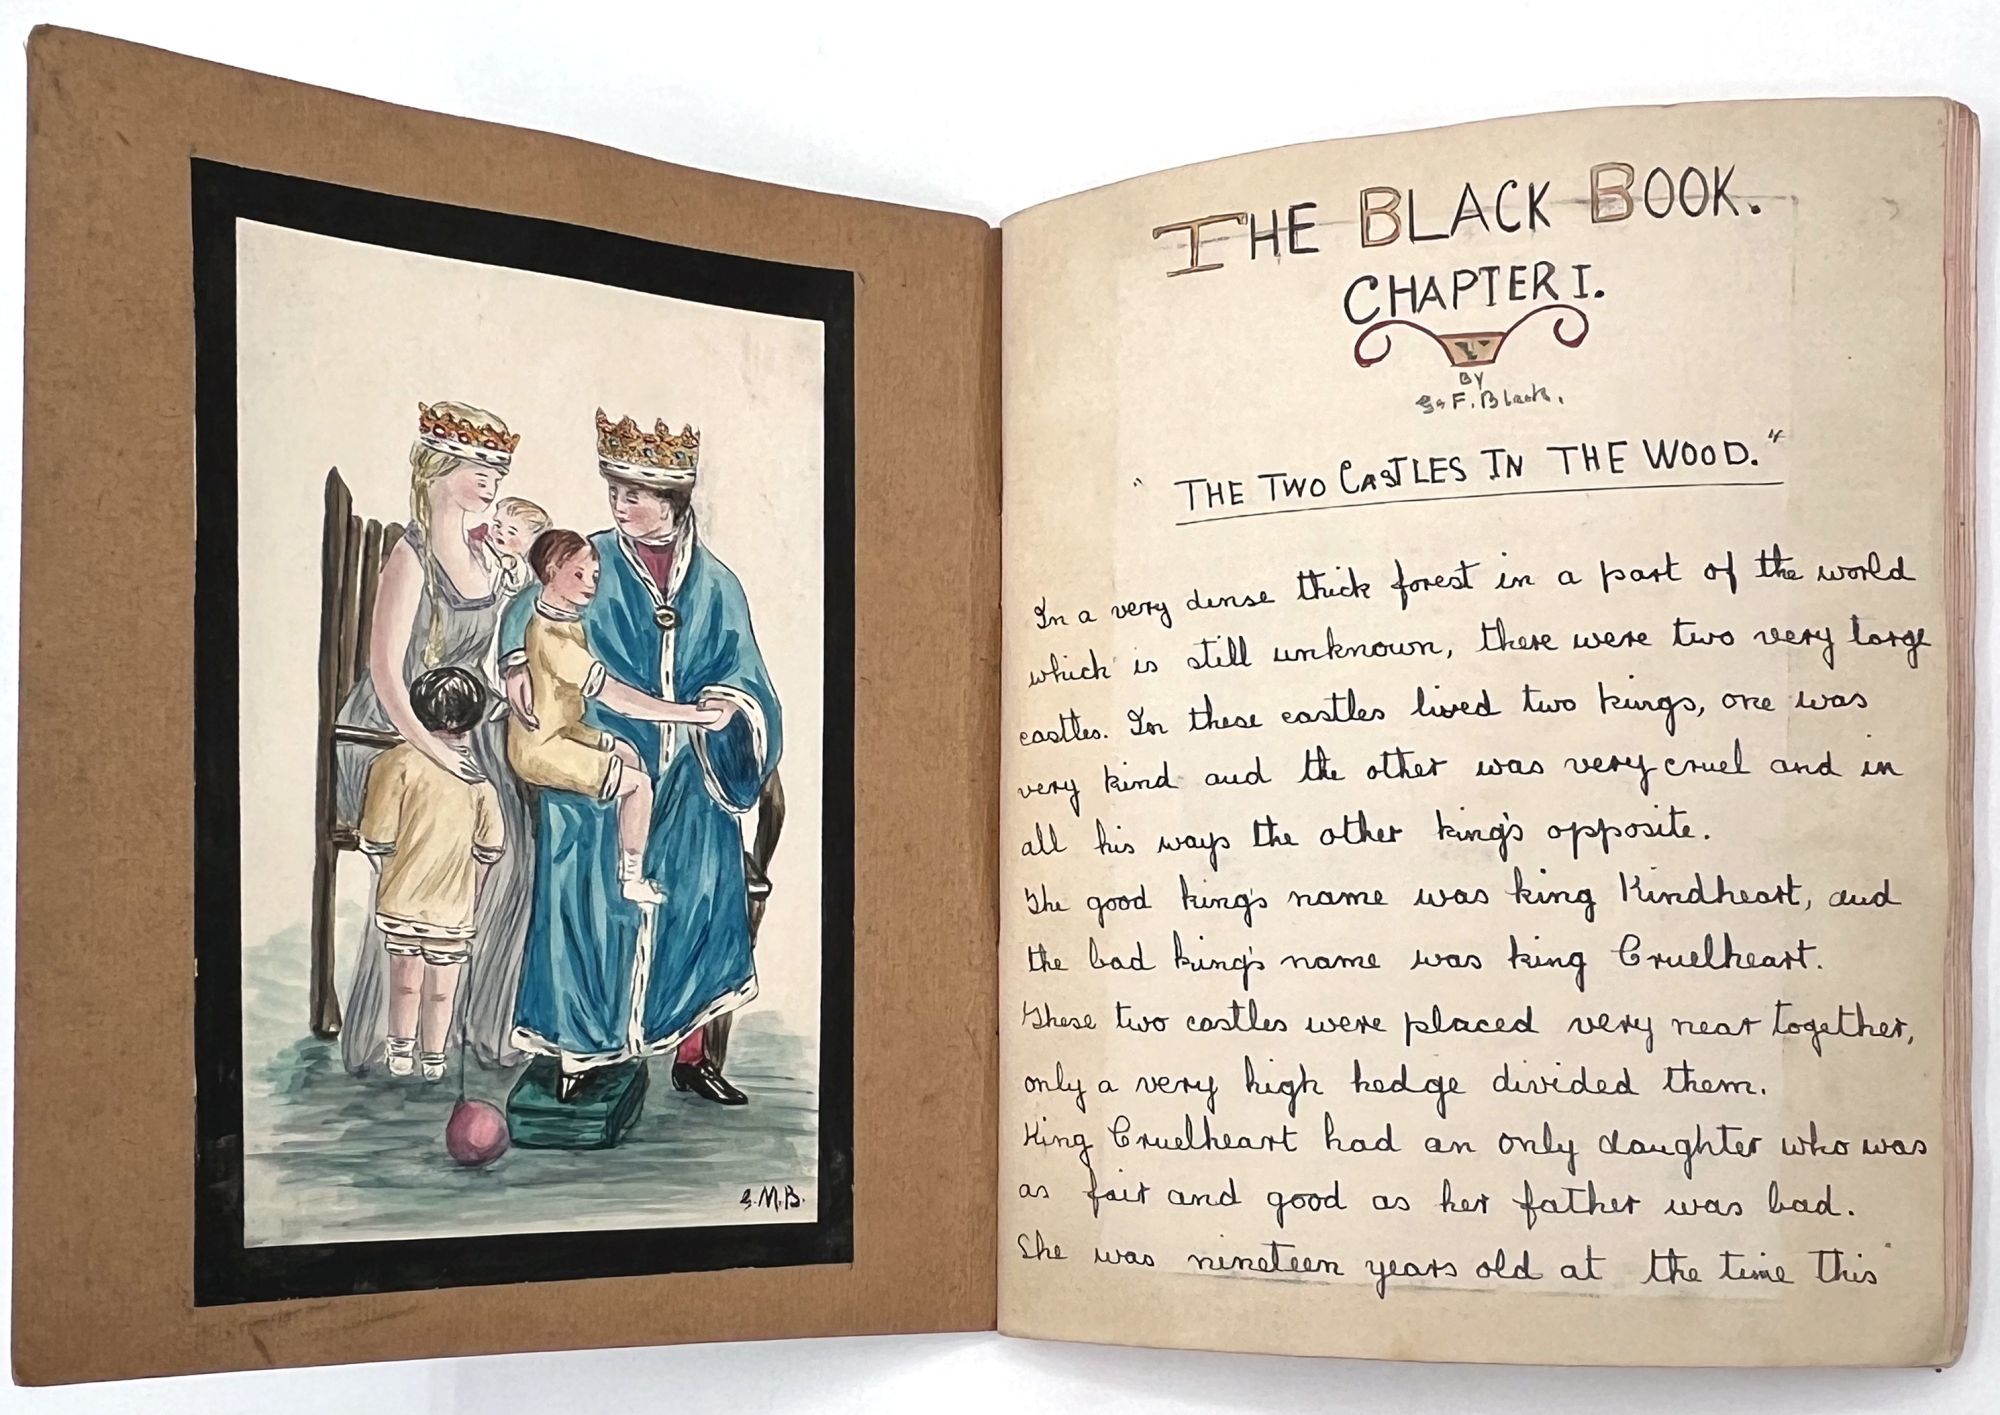 S.M.B.
THE BLACK BOOK.
CHAPTER I.
BY
F. Black.
"THE TWO CASTLES IN THE WOOD."
In a very dense thick forest in a part of the world
which is still unknown, there were two very large
castles. In these castles lived two kings, one was
very kind and the other was very cruel and in
all his ways the other king's opposite.
The good king's name was king Kindheart, and
the bad king's name was king Cruelheart.
These two castles were placed very near together,
only a very high hedge divided them.
King Cruelheart had an only daughter who was
as fair and good as her father was bad.
She was nineteen years old at the time this